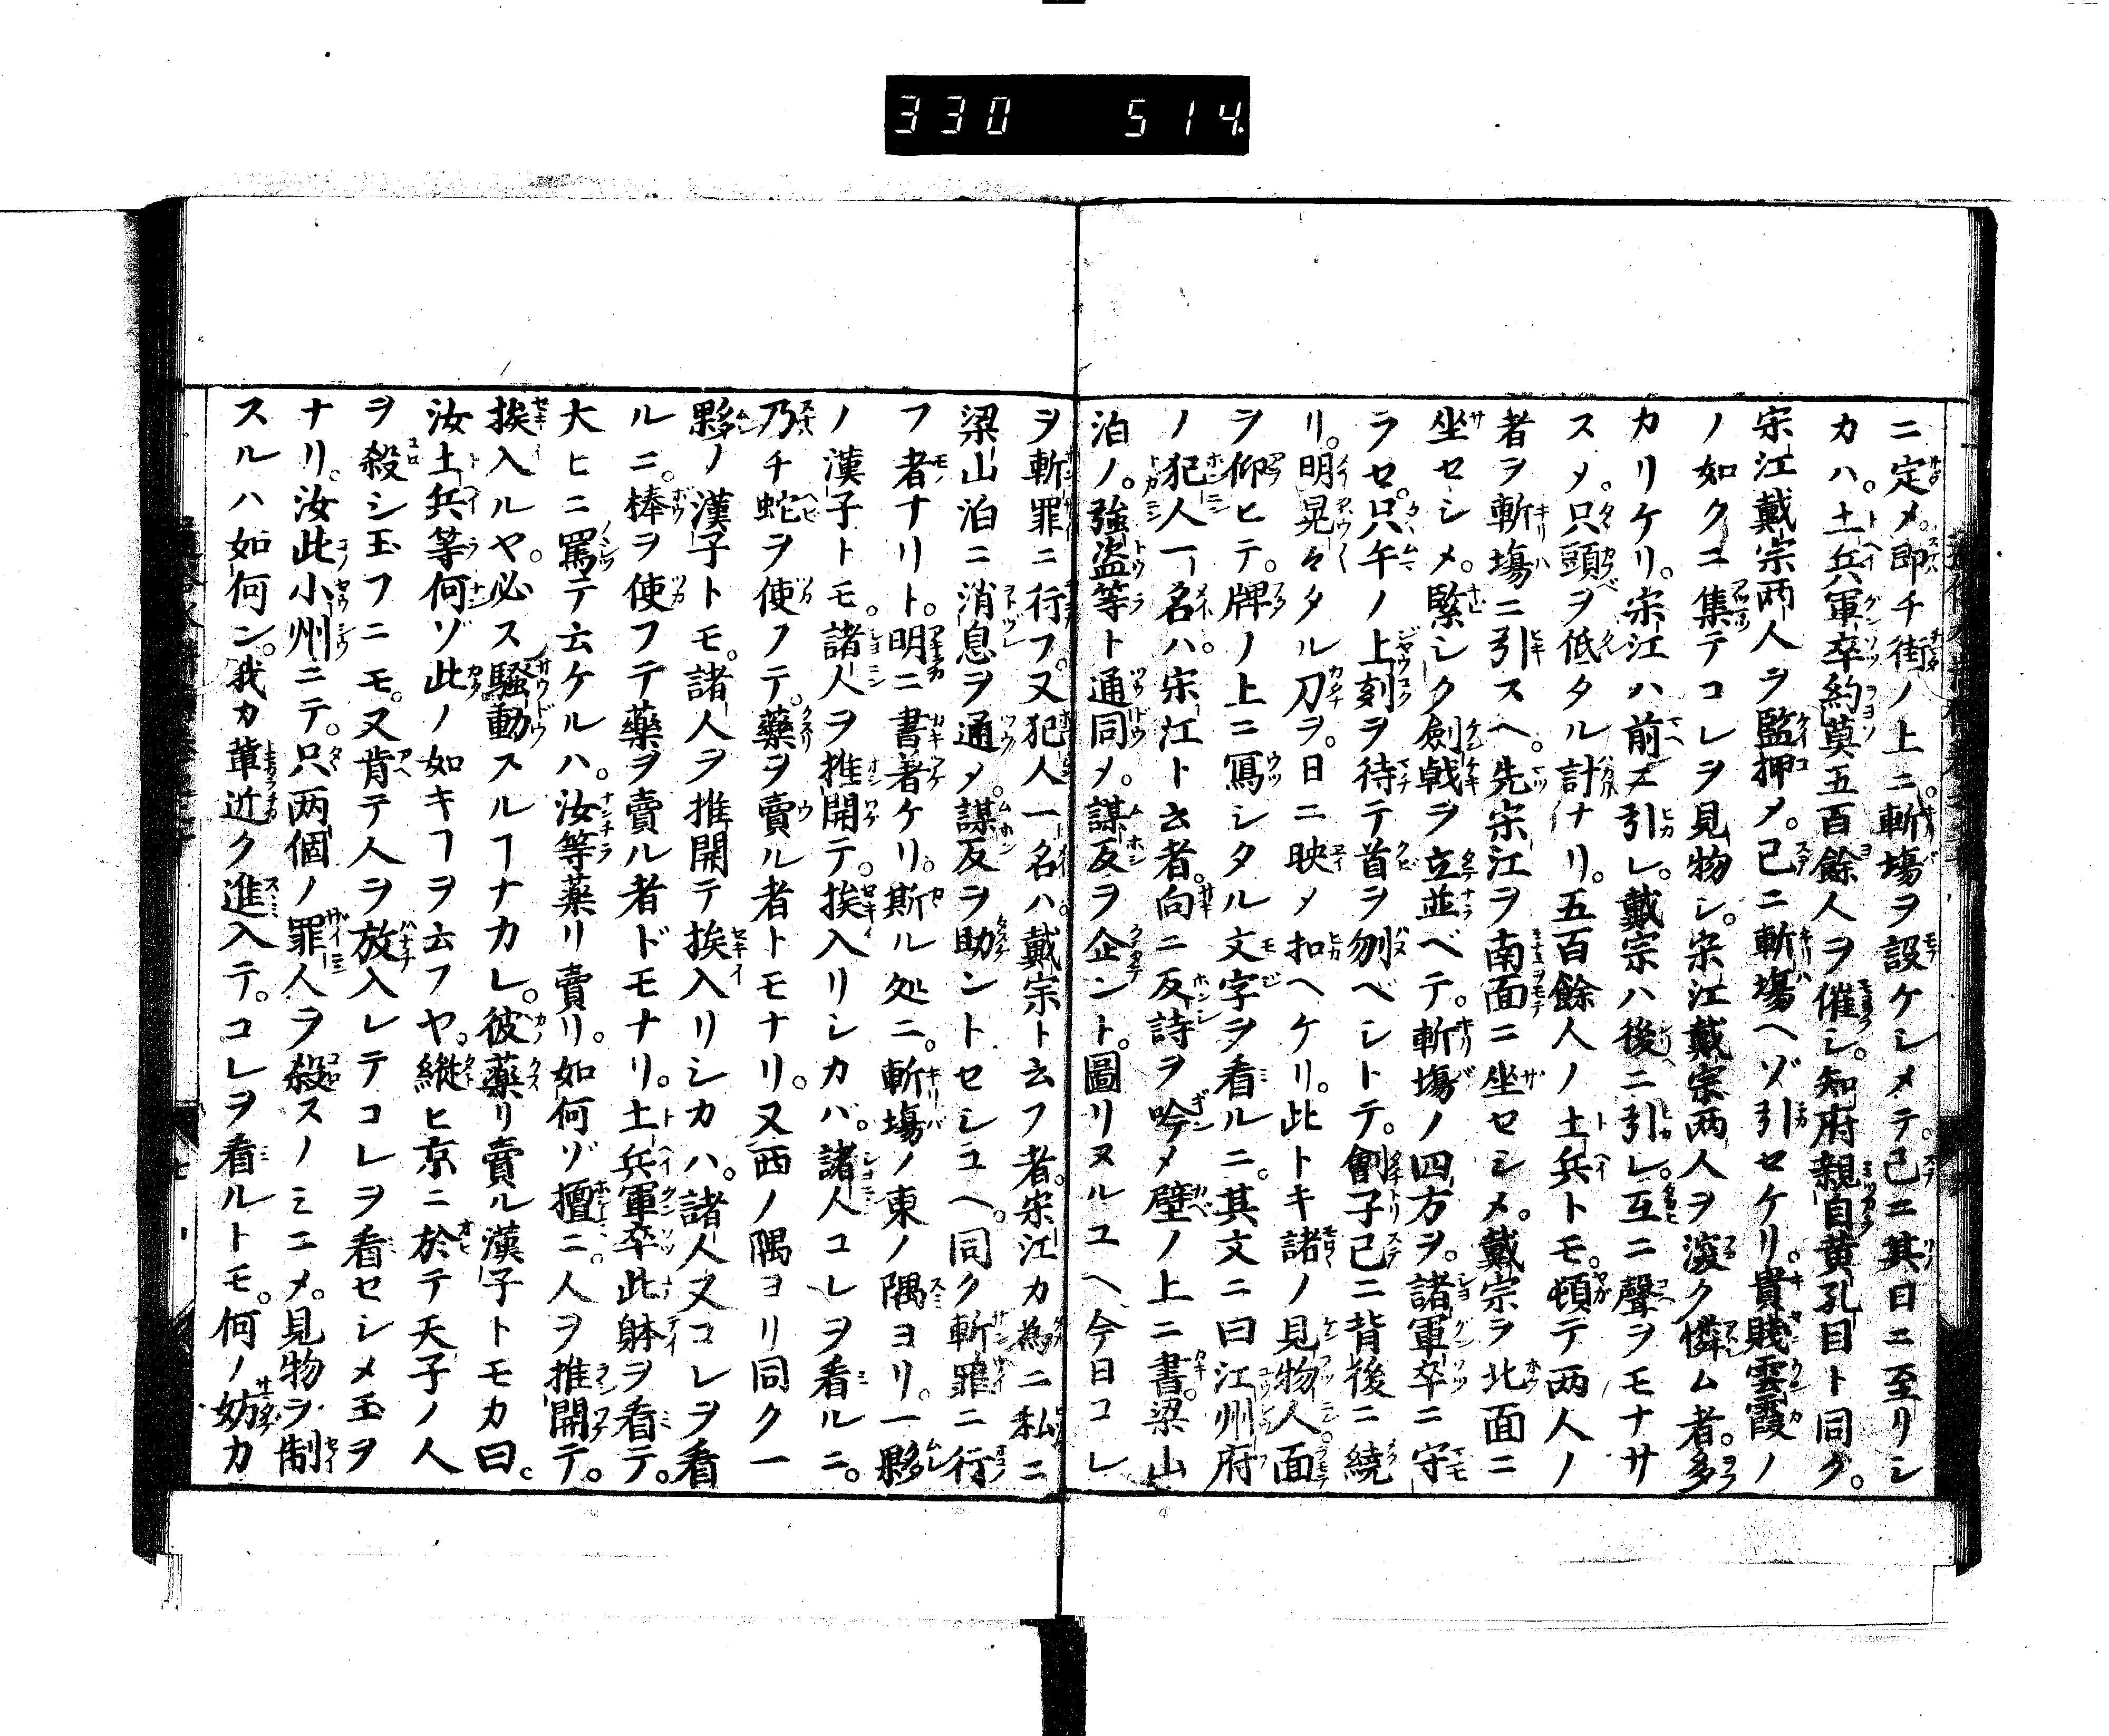 330 514.
ニ定メ。即チ街ノ上ニ。斬塲ヲ設ケシメテ。已ニ其日ニ至リシ
カハ。土兵軍卒約莫五百餘人ヲ催シ。知府親自黄孔目ト同ク。
宋江戴宗两人ヲ監押メ。已ニ斬塲ヘゾ引セケリ。貴賤雲霞ノ
ノ如クニ集テコレヲ見物シ。宋江戴宗两人ヲ深ク憐ム者。多
カリケリ。宋江ハ前ニ引レ。戴宗ハ後ニ引レ。互ニ聲ヲモナサ
スメ。只頭ヲ低タル計ナリ。五百餘人ノ土兵トモ。頓テ两人ノ
者ヲ斬塲ニ引スヘ。先宋江ヲ南面ニ坐セシメ。戴宗ヲ北面ニ
坐セシメ。緊シク劍戟ヲ立並ベテ。斬塲ノ四方ヲ。諸軍卒ニ守
ラセ。只午ノ上刻ヲ待テ首ヲ刎ベシトテ。劊子已ニ背後ニ繞
リ。明晃々タル刀ヲ。日ニ映メ扣ヘケリ。此トキ諸ノ見物人面
ヲ仰ヒテ。牌ノ上ニ寫シタル文字ヲ看ルニ。其文ニ曰江州府
ノ犯人一名ハ。宋江ト云者。向ニ反詩ヲ吟メ壁ノ上ニ書。梁山
泊ノ。強盗等ト通同メ。謀反ヲ企ント。圖リヌルユヘ今日コレ
ヲ斬罪ニ行フ。又犯人一名ハ。戴宗ト云フ者。宋江カ為ニ私ニ
梁山泊ニ消息ヲ通メ。謀反ヲ助ントセシユヘ。同ク斬罪ニ行
フ者ナリト。明ニ書著ケリ。斯ル処ニ。斬塲ノ東ノ隅ヨリ。一夥
ノ漢子トモ。諸人ヲ推開テ。挨入リシカバ。諸人コレヲ看ルニ。
乃チ蛇ヲ使フテ。藥ヲ賣ル者トモナリ。又西ノ隅ヨリ同ク一
夥ノ漢子トモ。諸人ヲ推開テ挨入リシカハ。諸人又コレヲ看
ルニ。棒ヲ使フテ藥ヲ賣ル者ドモナリ。土兵軍卒此躰ヲ看テ。
大ヒニ罵テ云ケルハ。汝等藥リ賣リ。如何ゾ擅ニ。人ヲ推開テ。
挨入ルヤ。必ス騒動スルヿナカレ。彼藥リ賣ル漢子トモカ曰。
汝土兵等何ゾ此ノ如キヿヲ云フヤ。縦ヒ京ニ於テ天子ノ人
ヲ殺シ玉フニモ。又肯テ人ヲ放入レテコレヲ看セシメ玉ヲ
ナリ。汝此小州ニテ。只两個ノ罪人ヲ殺スノミニメ。見物ヲ制
スルハ如何ン。我カ軰近ク進入テ。コレヲ看ルトモ。何ノ妨カ